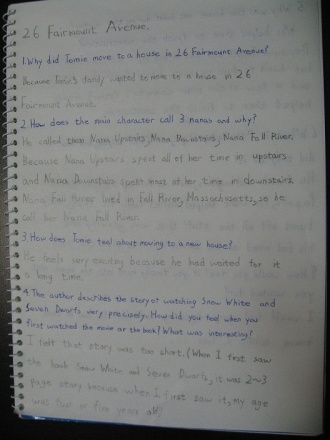 26 Fairmount Avenue.
1. Why did Tomie move to a house in 26 Fairmount Avenue?
Because Tomie's family wanted to move to a house in 26
Fairmount Avenue.
2. How does the main character call 3 nanas and why?
He called them Nana Upstairs, Nana Downstairs, Nana Fall River.
Because Nana Upstairs spent all of her time in upstairs
and Nana Downstairs spent most of her time in downstairs.
Nana Fall River lived in Fall River, Massachusetts, so he
call her Nana Fall River.
3. How does Tomie feel about moving to a new house?
He feels very exciting because he had waited for it
a long time.
4. The author describes the story of watching Snow White and
Seven Dwarfs very precisely. How did you feel when you
first watched the movie or the book? What was interesting?
I felt that story was too short. (When I first saw
the book Snow White and Seven Dwarfs, it was 2~3
page story because when I first saw it, my age
was four or five years old)